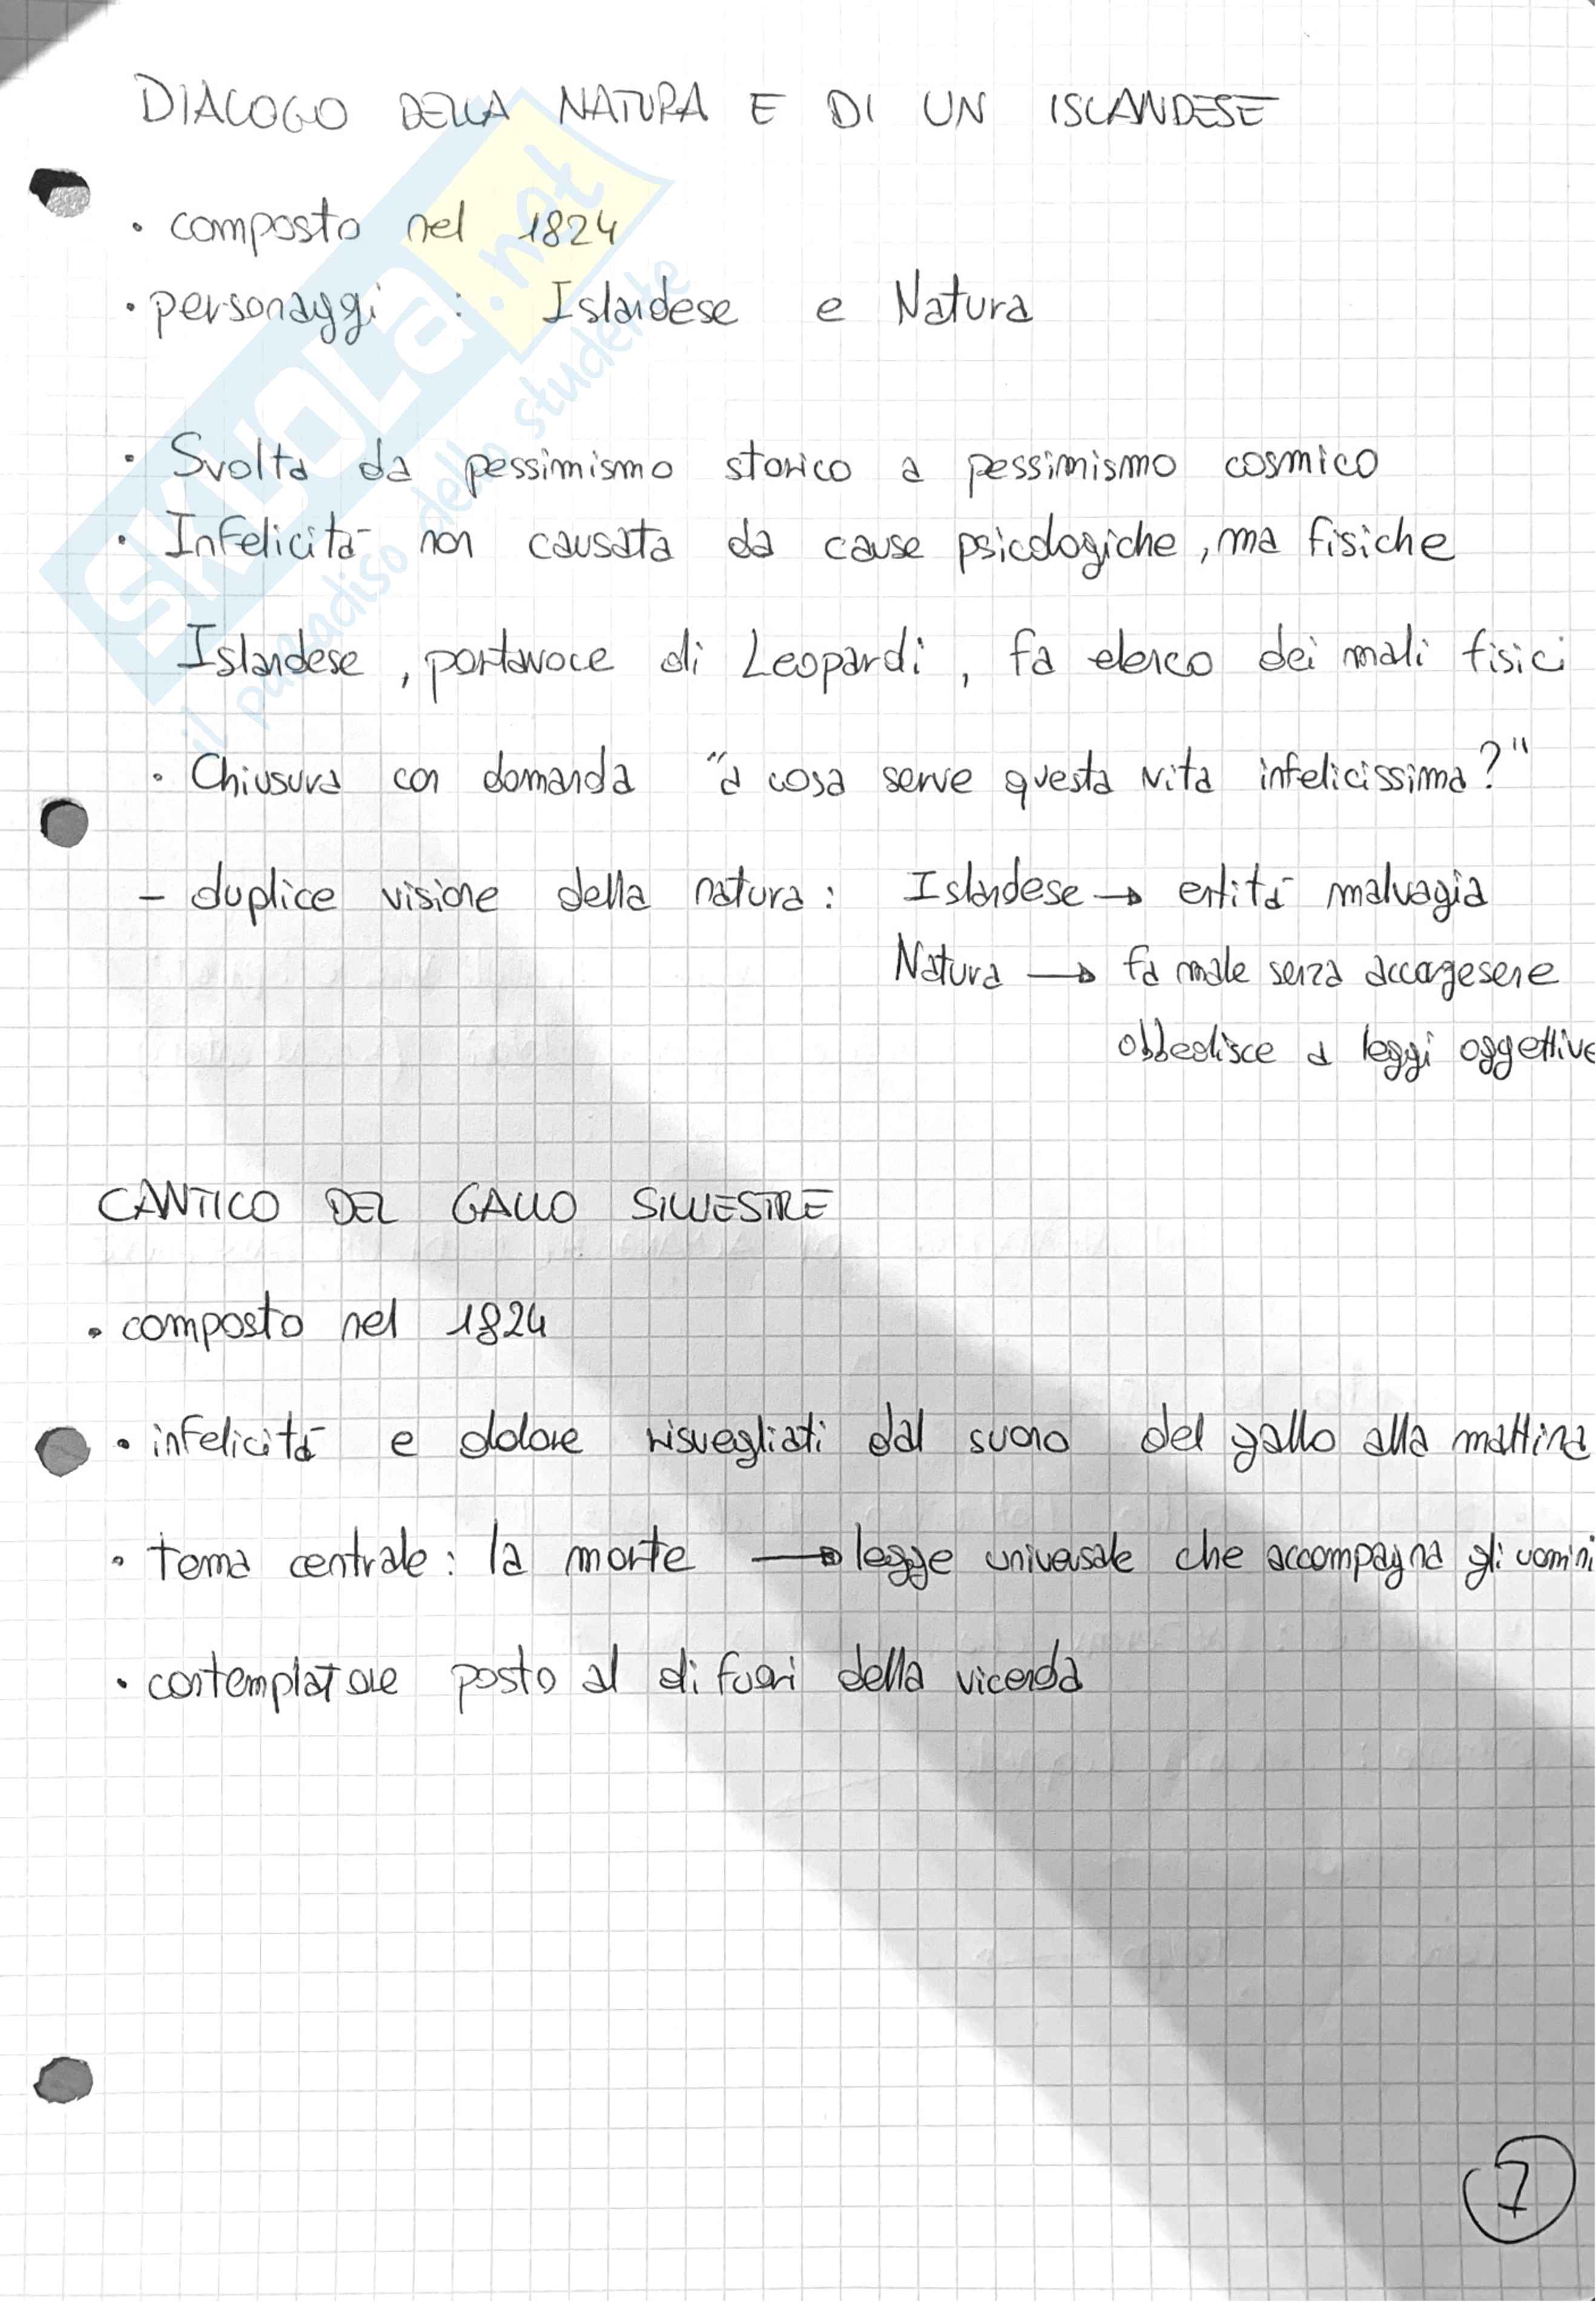 DIALOGO DELLA NATURA E DI UN ISLANDESE
• composto nel 1824
• personaggi : Islandese e Natura
• Svolta da pessimismo storico a pessimismo cosmico
• Infelicità non causata da cause psicologiche, ma fisiche
Islandese, portavoce di Leopardi, fa elenco dei mali fisici
• Chiusura con domanda "a cosa serve questa vita infelicissima?"
- duplice visione della natura: Islandese → entità malvagia
Natura → fa male senza accorgesene
obbedisce a leggi oggettive
CANTICO DEL GALLO SILVESTRE
• composto nel 1824
• infelicità e dolore risvegliati dal suono del gallo alla mattina
• tema centrale: la morte → legge universale che accompagna gli uomini
• contemplatore posto al di fuori della vicenda
7
SKUOLA.net
il paradiso dello studente